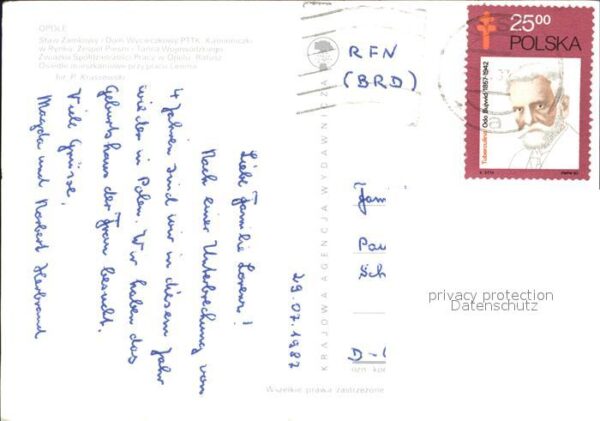 OPOLE
Staw Zamkowy i Dom Wycieczkowy PTTK. Kamieniczki
w Rynku. Zespół Pieśni i Tańca Wojewódzkiego
Związku Spółdzielczości Pracy w Opolu. Ratusz
Osiedle mieszkaniowe przy placu Lenina
fot. P. Krassowski
29.07.1987
Liebe Familie Lorenz!
Nach einer Unterbrechung von
4 Jahren sind wir in diesem Jahr
wieder in Polen. Wir haben das
Geburtshaus der Frau besucht.
Viele Grüsse,
Magda und Norbert Herbrand
KRAJOWA AGENCJA WYDAWNICZA
RFN
(BRD)
Fam
Pau
Sch
D-
Wszelkie prawa zastrzeżone
2500
POLSKA
Tuberculina Odo Bujwid 1857-1942
privacy protection
Datenschutz